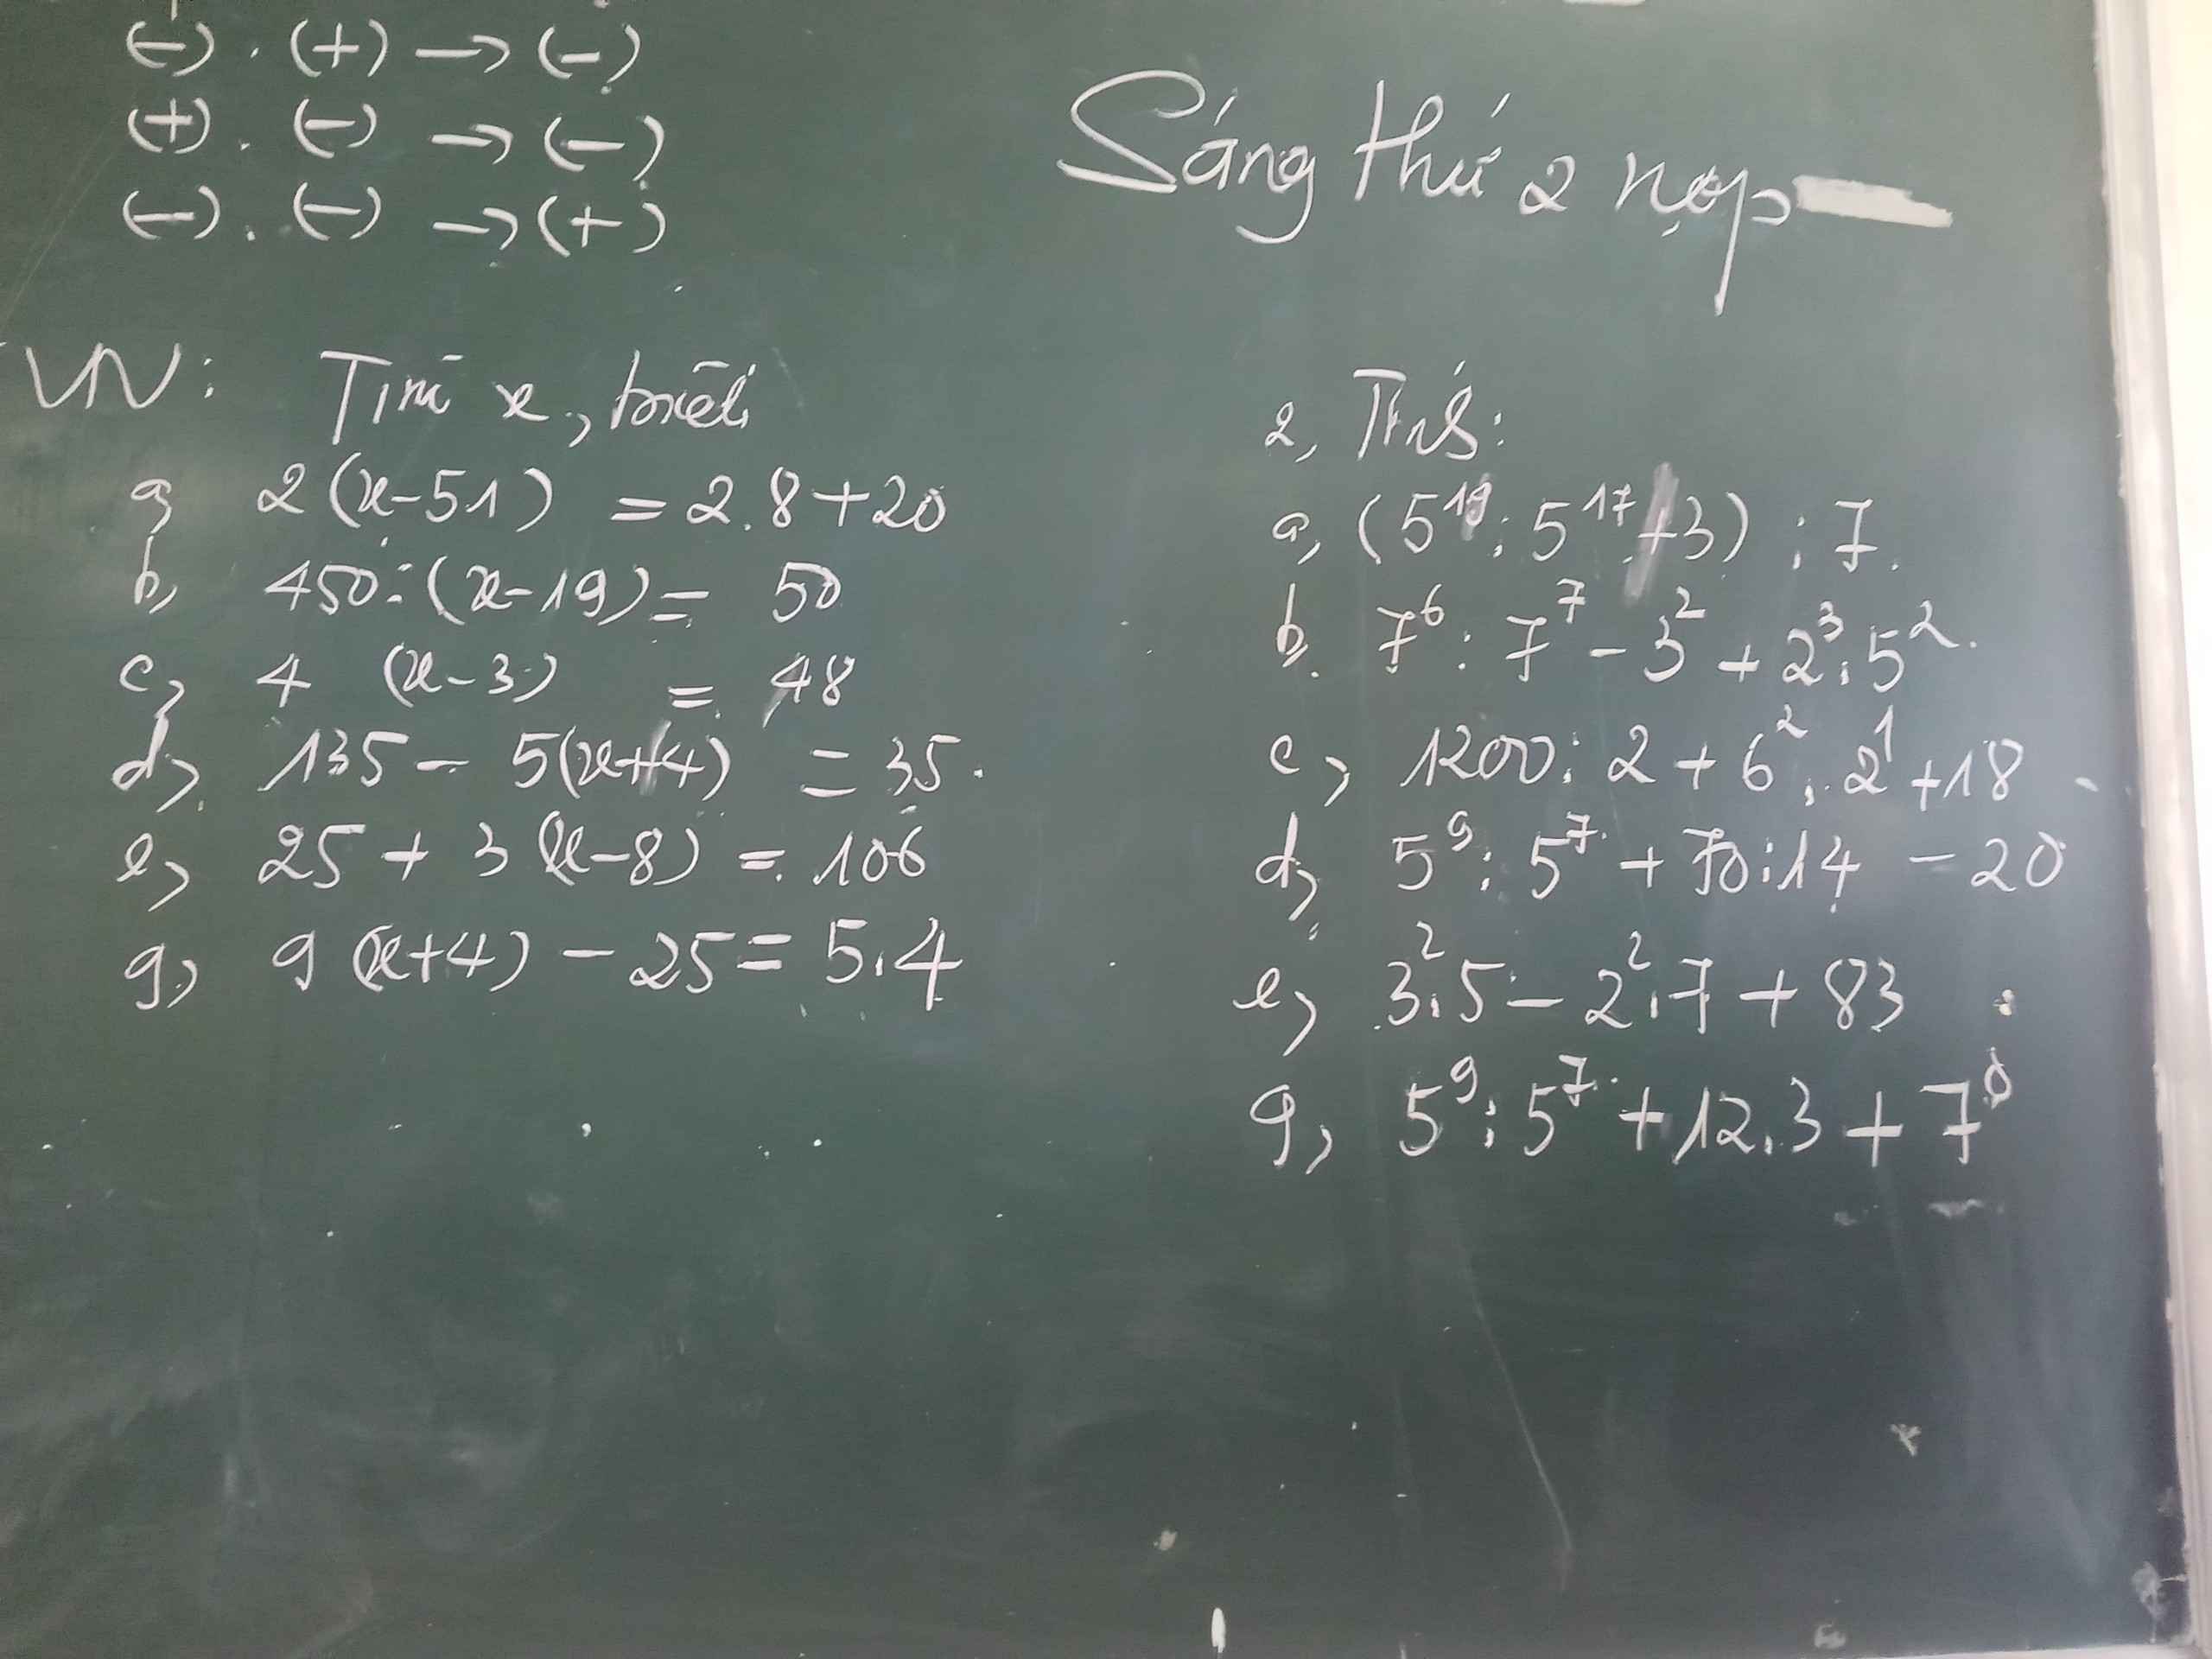 (-) . (+) → (-)
(+) . (-) → (-)
(-) . (-) → (+)
Sáng thứ 2 nộp
VN: Tìm x, biết
a, 2(x-51) = 2.8+20
b, 450:(x-19) = 50
c, 4 (x-3) = 48
d, 135 - 5(x+4) = 35.
e, 25 + 3(x-8) = 106
g, 9(x+4) - 25 = 5.4
2, Tính:
a, (5¹⁹ : 5¹⁷ + 3) : 7.
b. 7⁶ : 7⁷ - 3² + 2³.5².
c, 1200 : 2 + 6² . 2¹ + 18
d, 5⁹ : 5⁷ + 70:14 - 20
e, 3².5 - 2².7 + 83
g, 5⁹ : 5⁷ + 12.3 + 7⁰